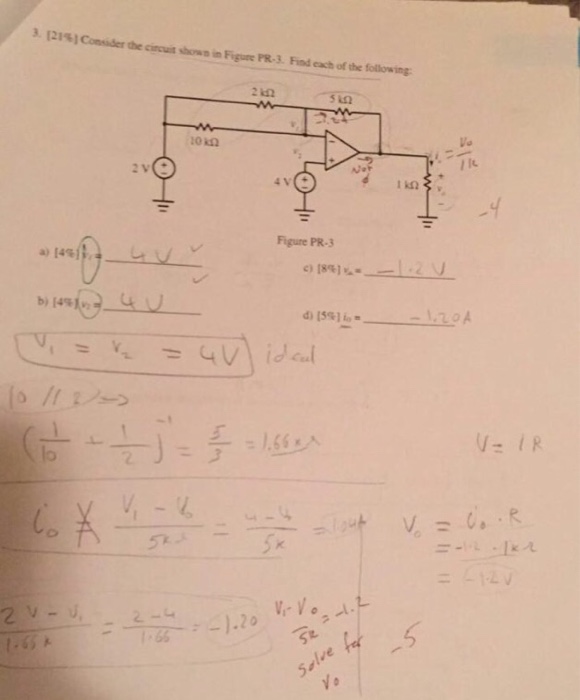 3. [21%] Consider the circuit shown in Figure PR-3. Find each of the following:
2 kΩ
5 kΩ
10 kΩ
Not
= Vo / 1k
2 V
4 V
1 kΩ
-4
Figure PR-3
a) [4%] v₁ = 4V ✓
c) [8%] vₒ = -1.2 V
b) [4%] v₂ = 4V ✓
d) [5%] iₒ = -1.20A
V₁ = V₂ = 4V ideal
10 // 2 =>
(1/10 + 1/2)⁻¹ = 5/3 = 1.66 k
V = IR
V₁ - V₀ / 5k = 4 - V₀ / 5k
V₀ = i₀ · R
= -1.2 · 1kΩ
= -1.2V
2V - V₁ / 1.66k = 2-4 / 1.66 = -1.20
V₁ - V₀ / 5k = -1.2
solve for
V₀
-5